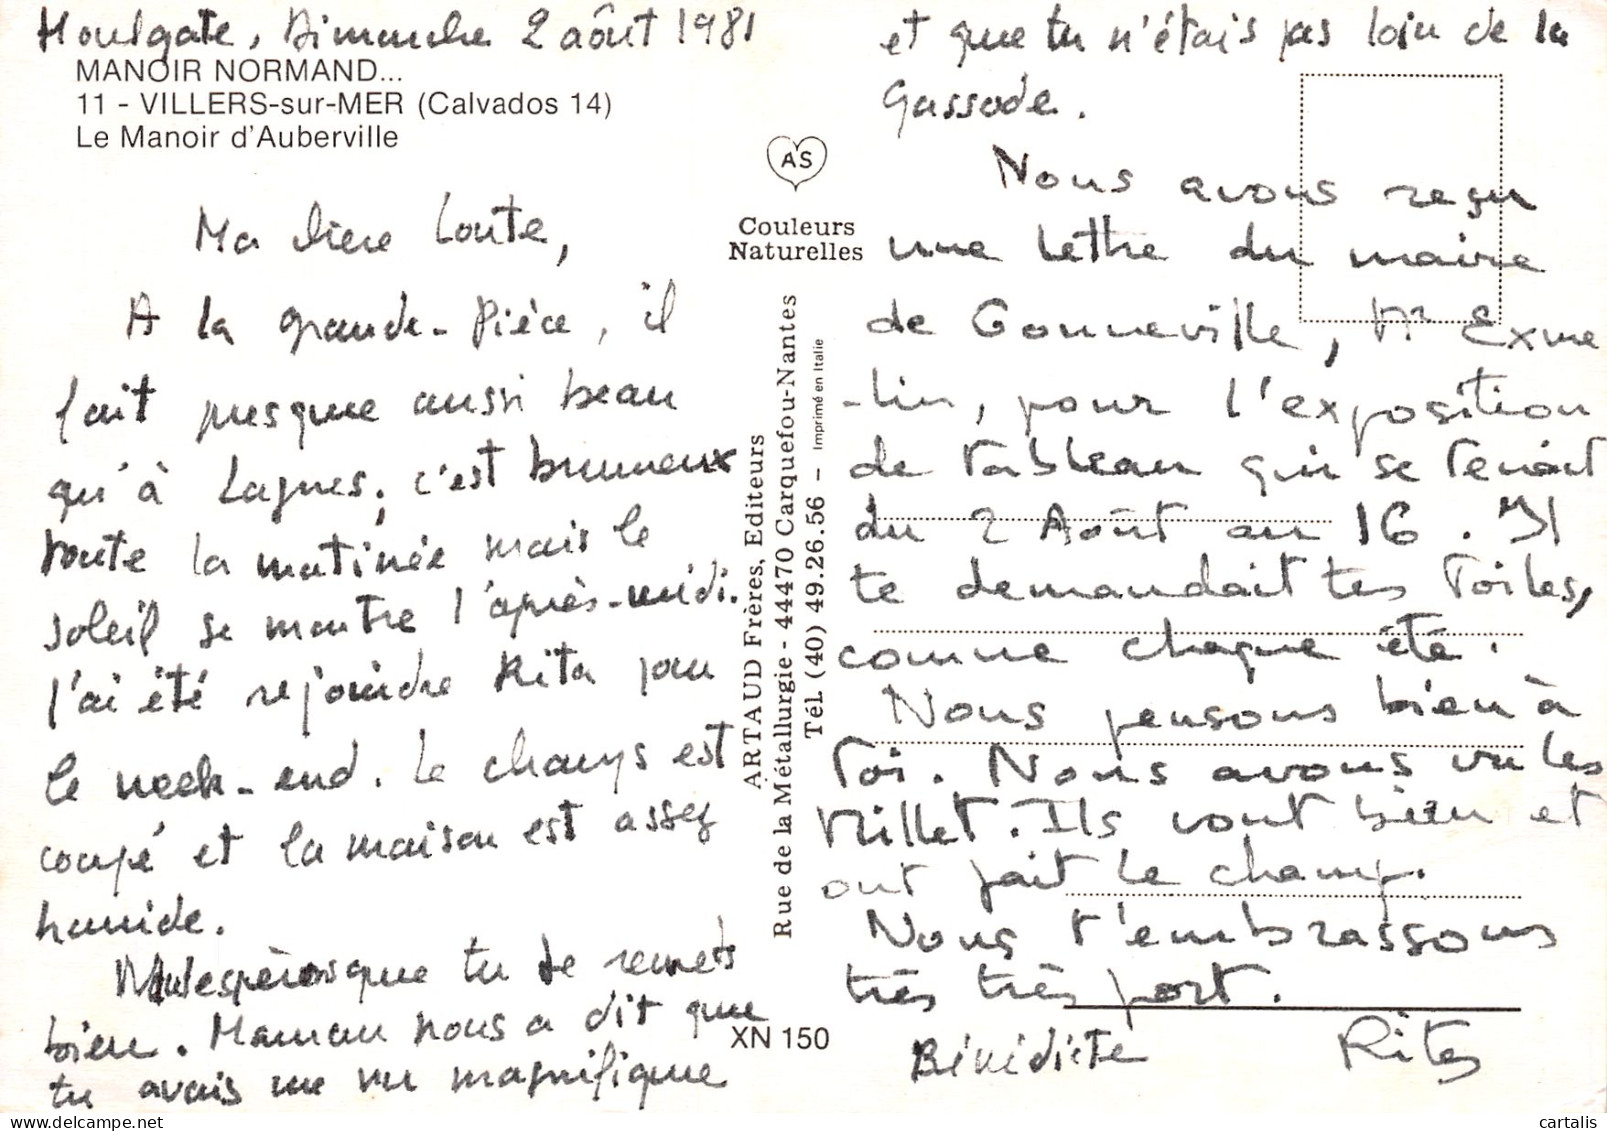 Houlgate, Dimanche 2 août 1981
MANOIR NORMAND...
11 - VILLERS-sur-MER (Calvados 14)
Le Manoir d'Auberville
Ma chère Loute,
A la grande-Pièce, il
fait presque aussi beau
qu'à Lagnes; c'est brumeux
toute la matinée mais le
soleil se montre l'après-midi.
J'ai été rejoindre Rita pour
le week-end. Le champs est
coupé et la maison est assez
humide.
que tu te remets
bien. Maman nous a dit que
tu avais une vu magnifique
AS
Couleurs
Naturelles
ARTAUD Frères, Editeurs
Rue de la Métallurgie - 44470 Carquefou-Nantes
Tél. (40) 49.26.56 - Imprimé en Italie
XN 150
et que tu n'étais pas loin de la
Gassode.
Nous avons reçu
une lettre du maire
de Gonneville, Mr Exme
-lin, pour l'exposition
de tableau qui se tenait
du 2 Août au 16. Il
te demandait tes toiles,
comme chaque été.
Nous pensons bien à
toi. Nous avons vu les
Millet. Ils vont bien et
ont fait le champ.
Nous t'embrassons
très très fort.
Bénédicte Rita
cartalis
cartalis.com